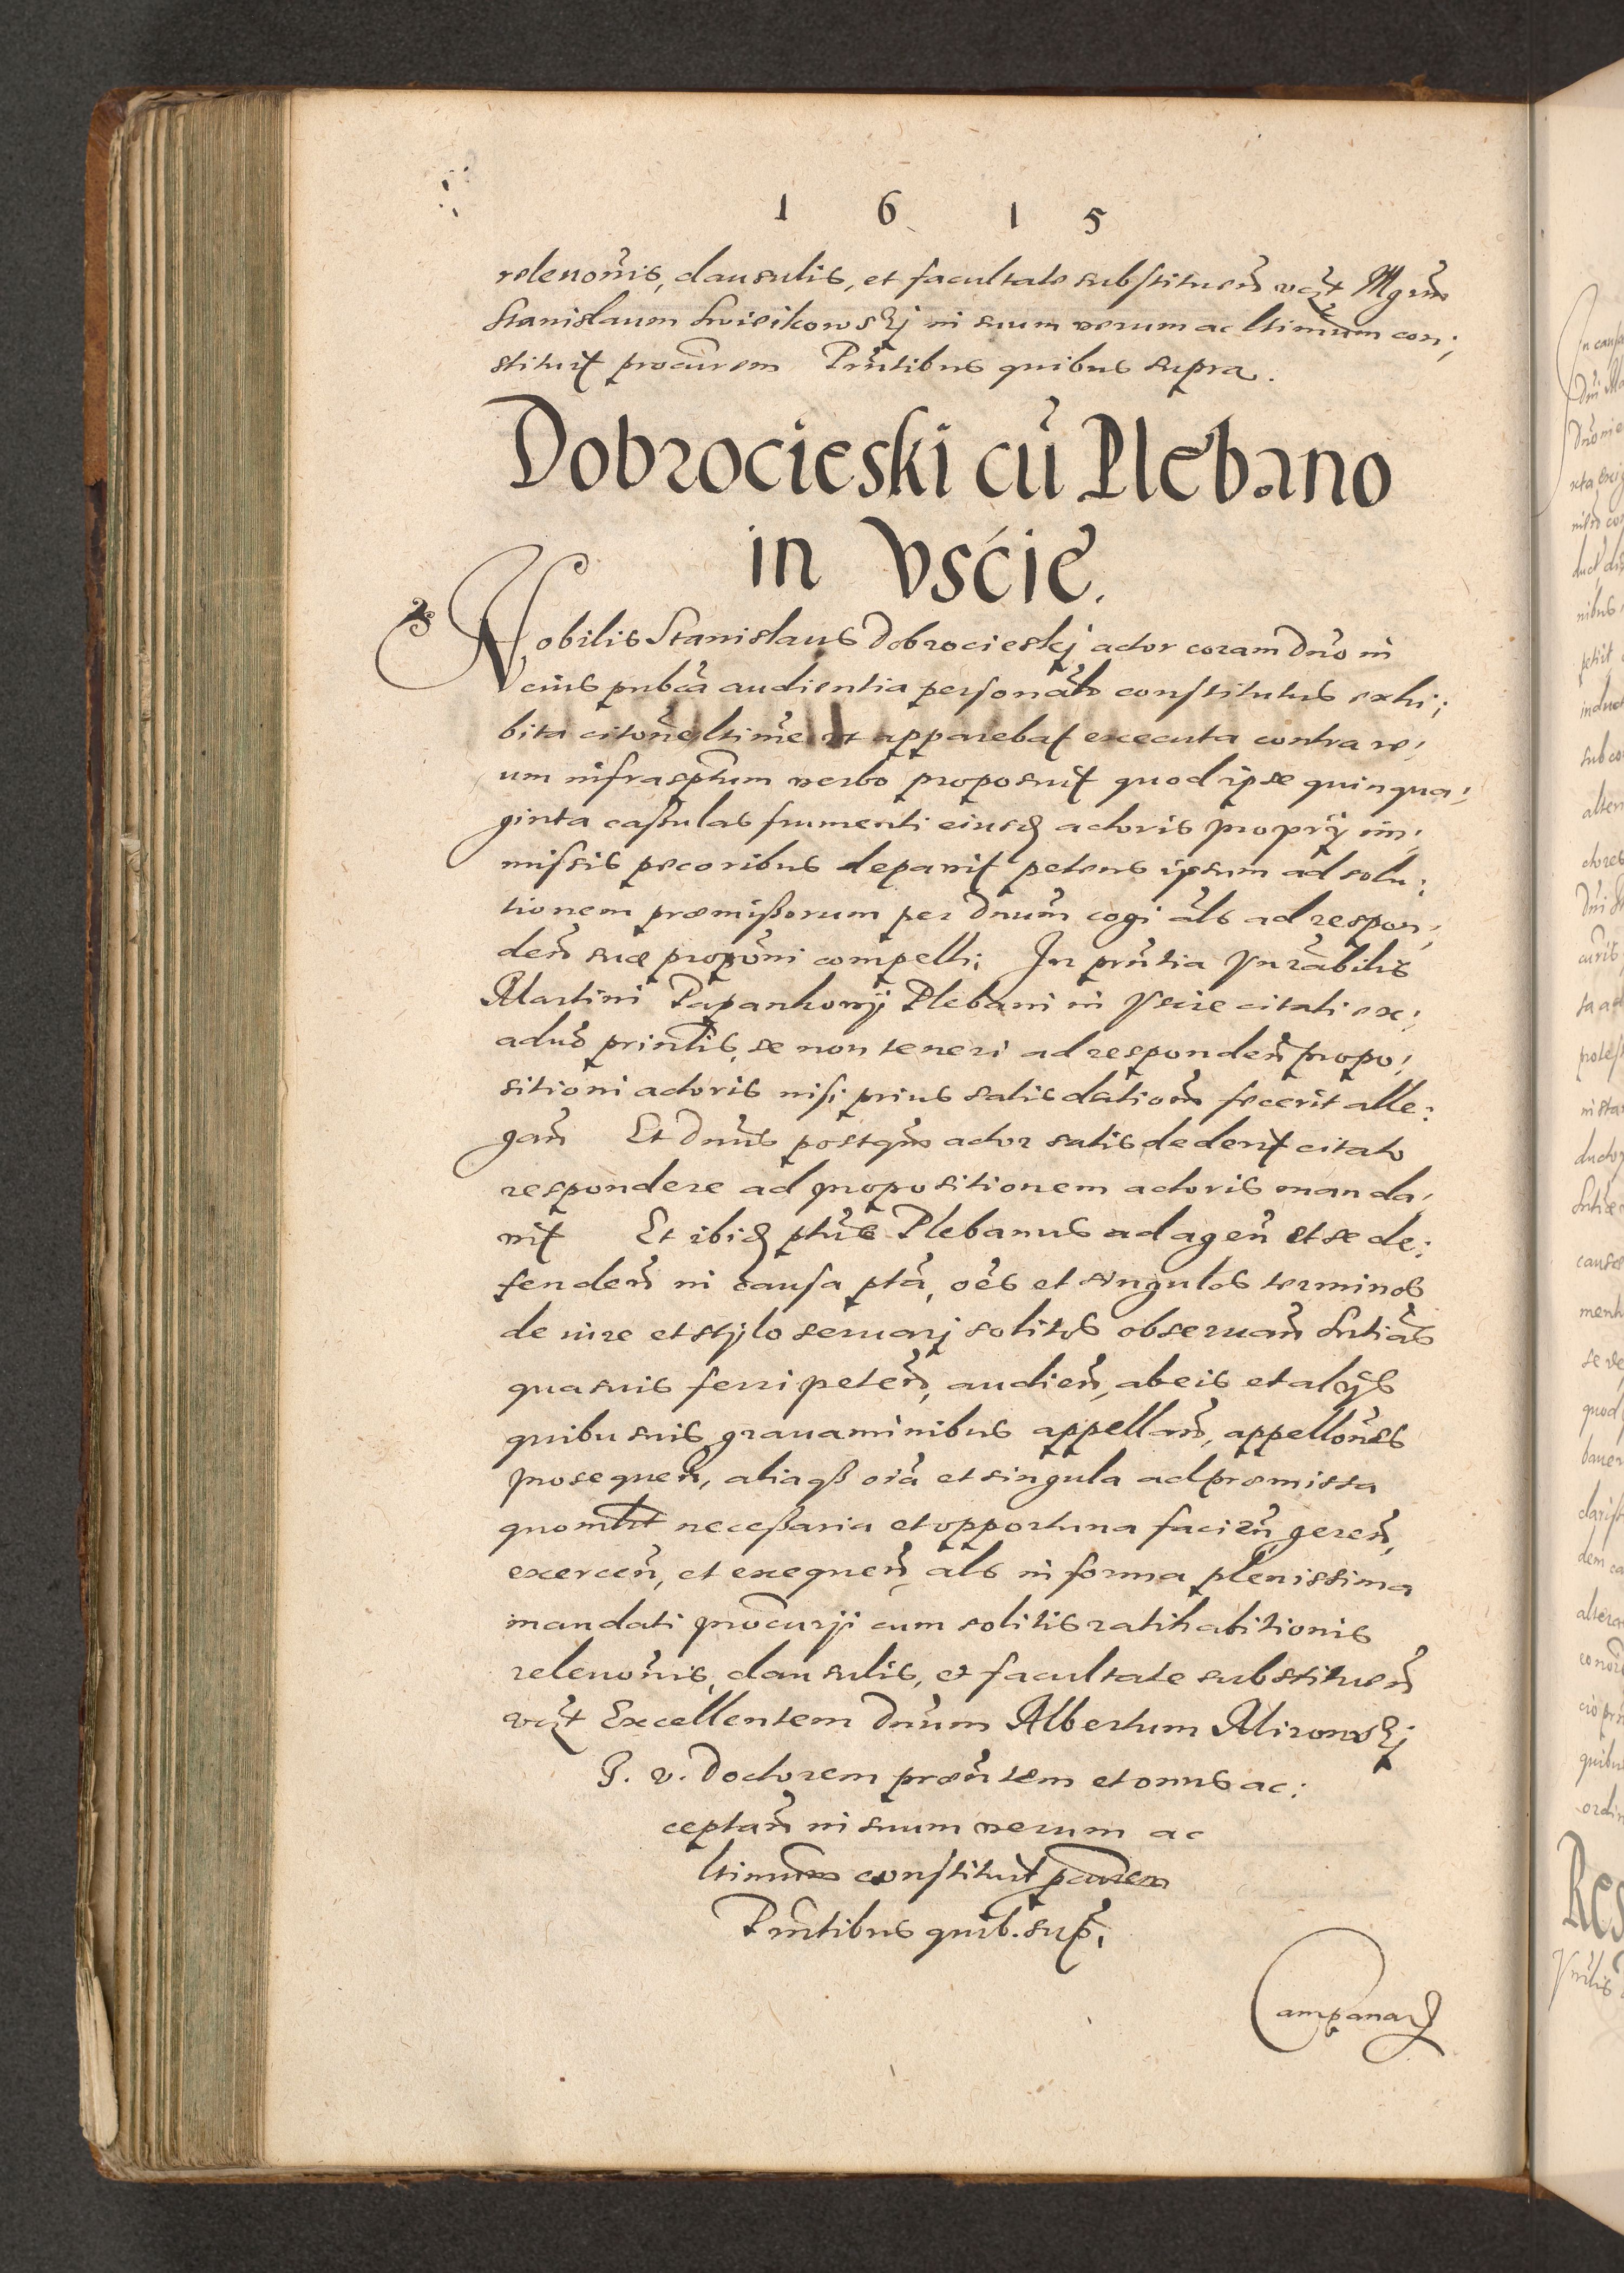 1 6 1 5
relevoñis, clausulis, et facultate substitueñ vc̃t Mgrm̃
Stanislaum Swieikowskj in suum verum ac ltimum con;
stituit procurem Pr̃ntibus quibus supra.
Dobrocieski cũ Plebano
in Vście.
Nobilis Stanislaus Dobrocieskj actor coram Dño in
eius pubc̃a audientia personal̃r constitutus exhi;
bita citoñe ltime ut apparebat executa contra re;
um infrasptum verbo proposuit quod ipse quinqua;
ginta cassulas frumenti eiusd actoris proprij im;
missis pecoribus depavit petens ipsum ad solu;
tionem præmissorum per Dnum̃ cogi al̃s ad respon;
deñ suæ propõni compelli; In pr̃ntia Vnrãbilis
Martini Papankowij Plebani in Vscie citati ex;
adũo principl̃is, se non teneri ad respondeñ propo;
sitioni actoris nisi prius satisdationẽ fecerit alle;
gañ Et Dnũs postqm̃ actor satis dederit citato
respondere ad propositionem actoris manda;
vit Et ibid ptus̃ Plebanus ad ageñ et se de;
fendeñ in causa pta, oẽs et singulos terminos
de iure et stijlo servarj solitos observañ Sntiãs
quasuis ferri peteñ, audieñ, ab eis et alijs
quibusuis gravaminibus appellañ, appelloñes
prosequeñ, aliaqß oĩa et singula ad præmissa
quomlt necessaria et opportuna facieñ, gereñ,
exerceñ, et exequeñ, als in forma plenissima
mandati procurij cum solitis ratihabitionis
relevoñis, clausulis, et facultate substitueñ
vc̃t Excellentem Dnũm Albertum Mirowskj
J. V. Doctorem præñtem et onus ac:
ceptañ in suum verum ac
ltimum constituit pcurem
Pr̃ntibus quib. sup̃,